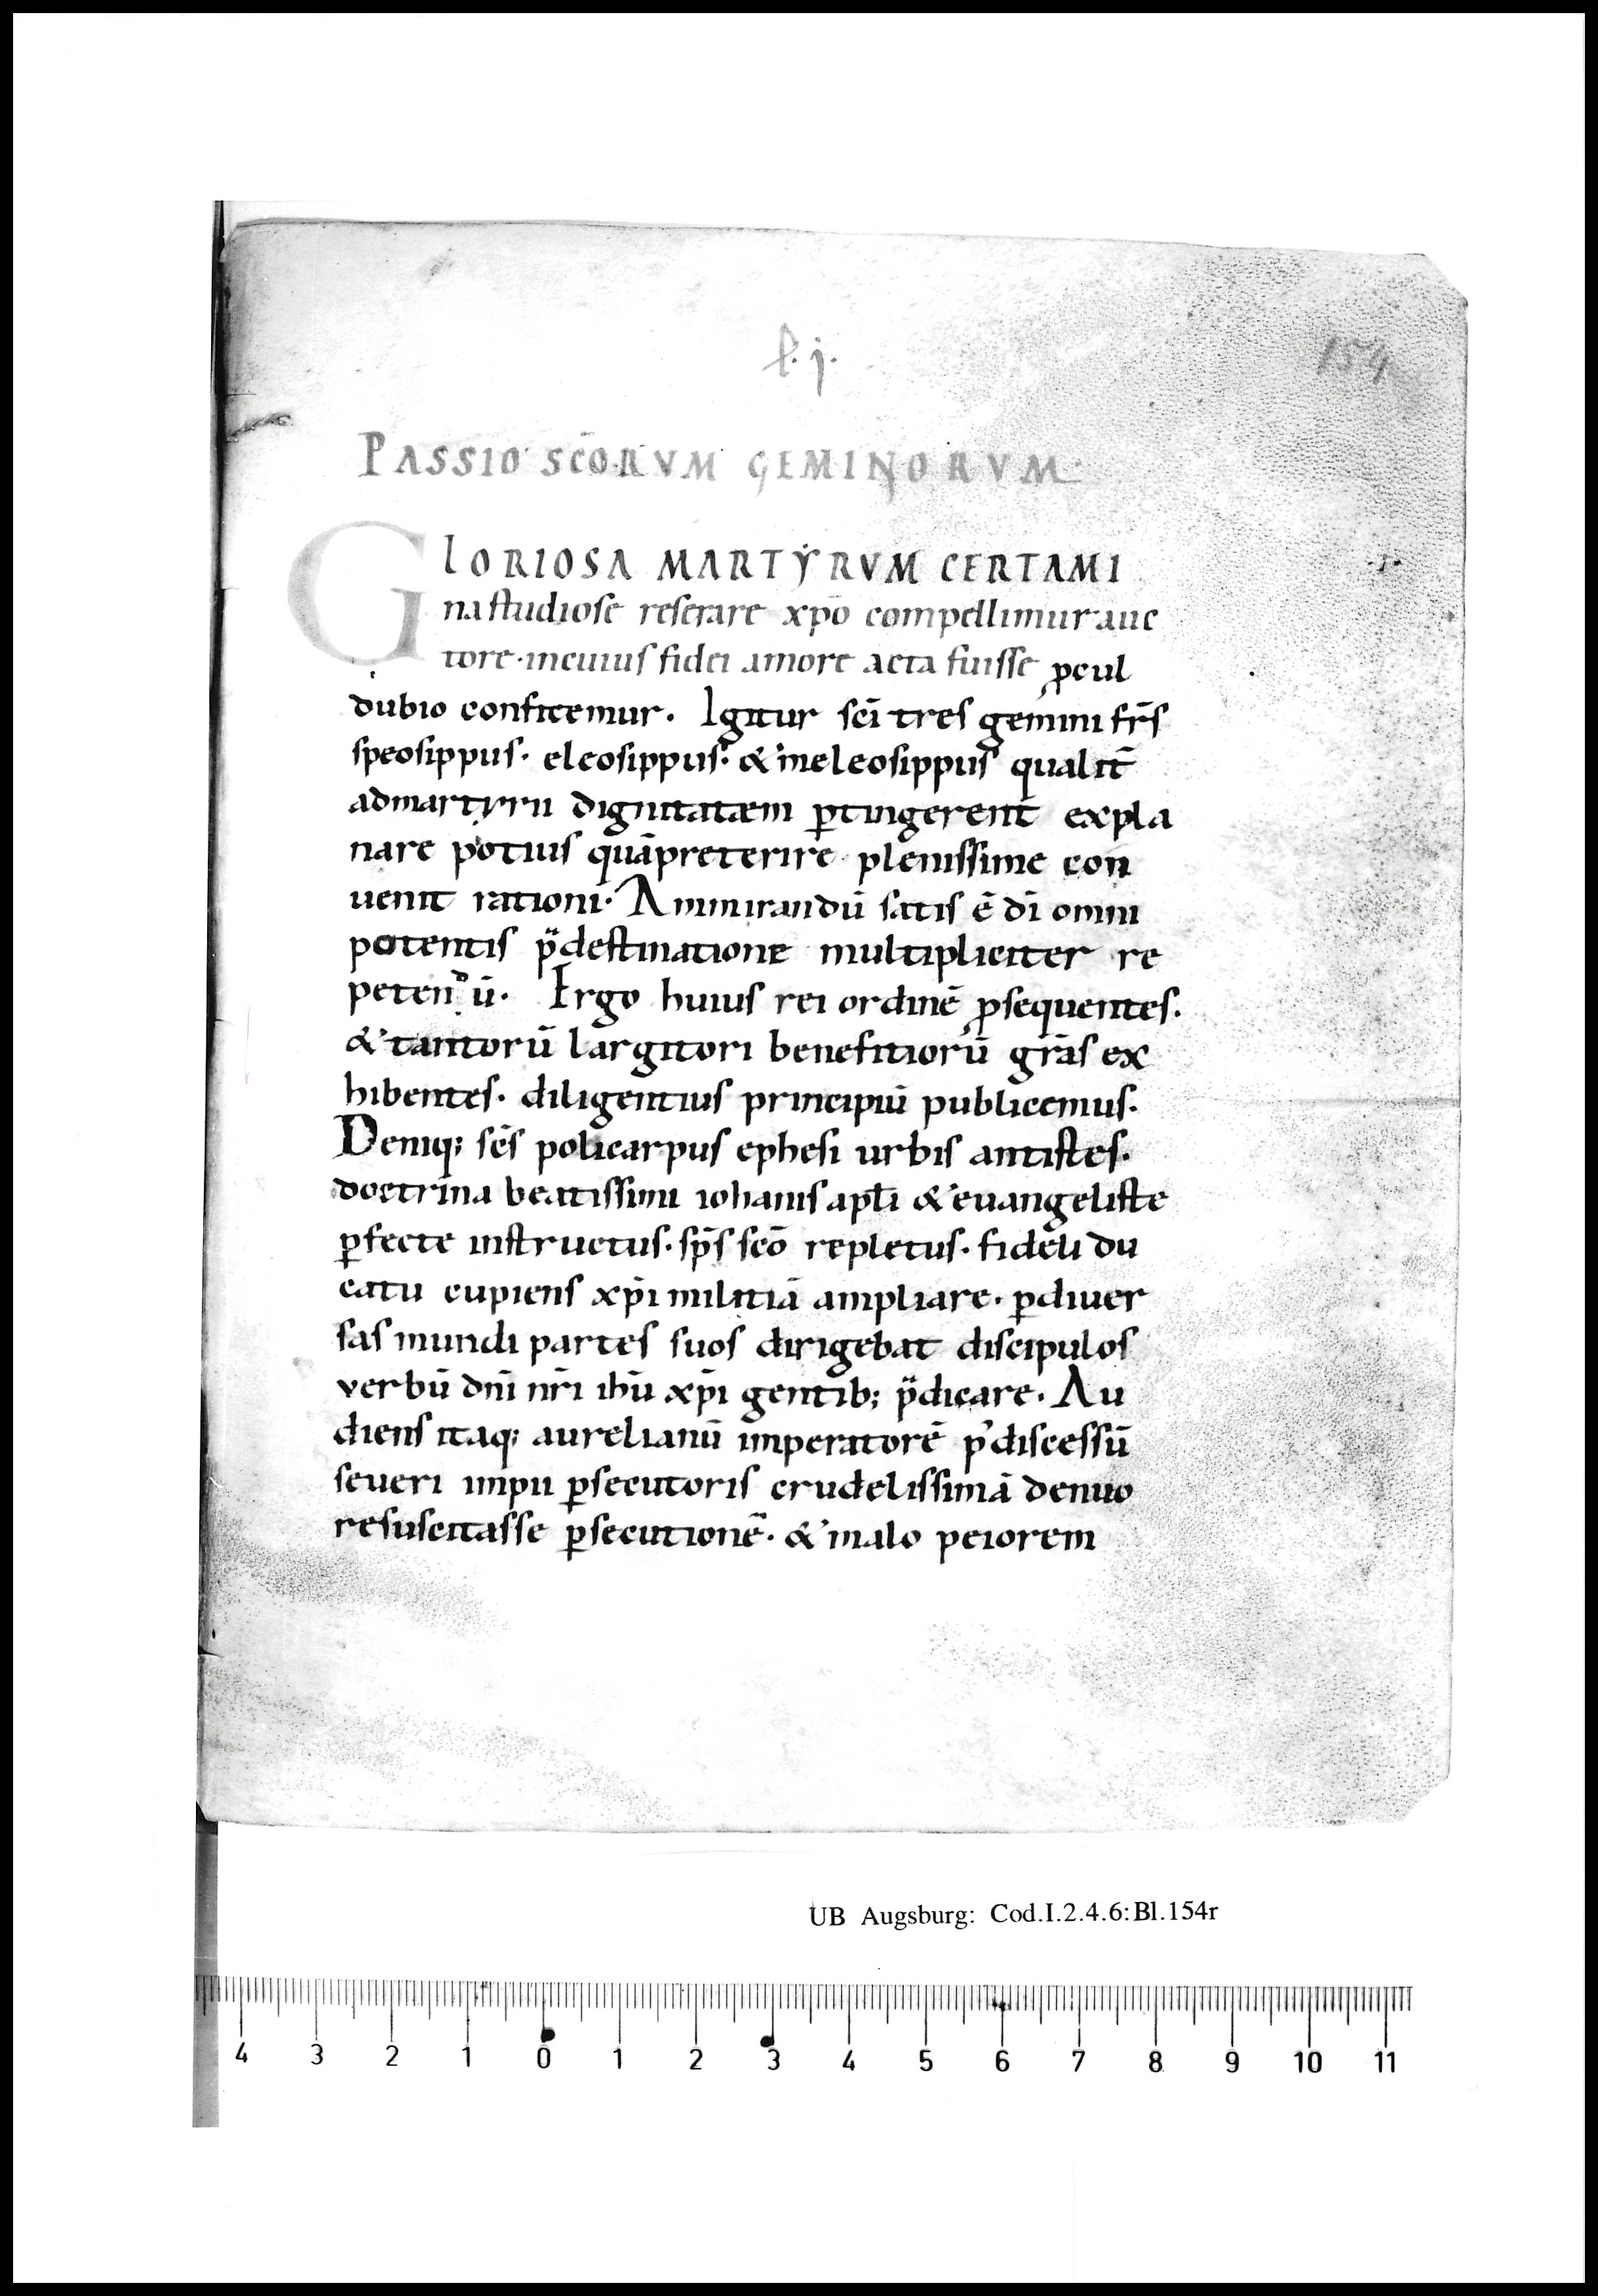 l. j.
154
PASSIO SCŌRVM GEMINORVM
GLORIOSA MARTẎRVM CERTAMI
·I·
na studiose reserare xp̄o compellimur auc
tore· incuius fidei amore acta fuisse ꝓcul
dubio confitemur. Igitur sc̄i tres gemini fr̄s
speosippus· eleosippus· & meleosippus qualit̄
admartyrii dignitatem ꝑtingerent expla
nare potius quā preterire plenissime con
uenit rationi· Ammirandū satis ē dī omni
potentis p̈destinatione multipliciter re
petendū· Ergo huius rei ordinē ꝓsequentes.
& tantorū largitori benefitiorū grās ex
hibentes· diligentius principiū publicemus.
Deniq; sc̄s policarpus ephesi urbis antistes·
doctrina beatissimi iohanis apl̄i & euangeliste
ꝑfecte instructus· sp̄s sc̄o repletus· fideli du
catu cupiens xp̄i militiā ampliare· ꝑ diuer
sas mundi partes suos dirigebat discipulos
verbū dn̄i nr̄i ih̄u xp̄i gentib; p̈dicare· Au
diens itaq; aurelianū imperatorē p' discessū
seueri impii ꝑsecutoris crudelissimā denuo
resuscitasse ꝑsecutionē· & malo peiorem
UB Augsburg: Cod.I.2.4.6:Bl.154r
4 3 2 1 0 1 2 3 4 5 6 7 8 9 10 11